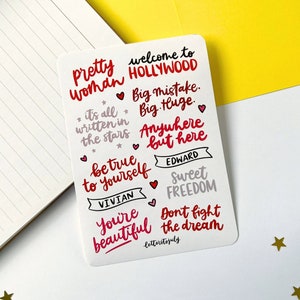 pretty
woman
welcome to
HOLLYWOOD
it's all
written in
the stars
Big mistake.
Big. Huge.
Anywhere
but here
be true
to yourself
EDWARD
sweet
FREEDOM
VIVIAN
You're
beautiful
Don't fight
the dream
letteritsjuly